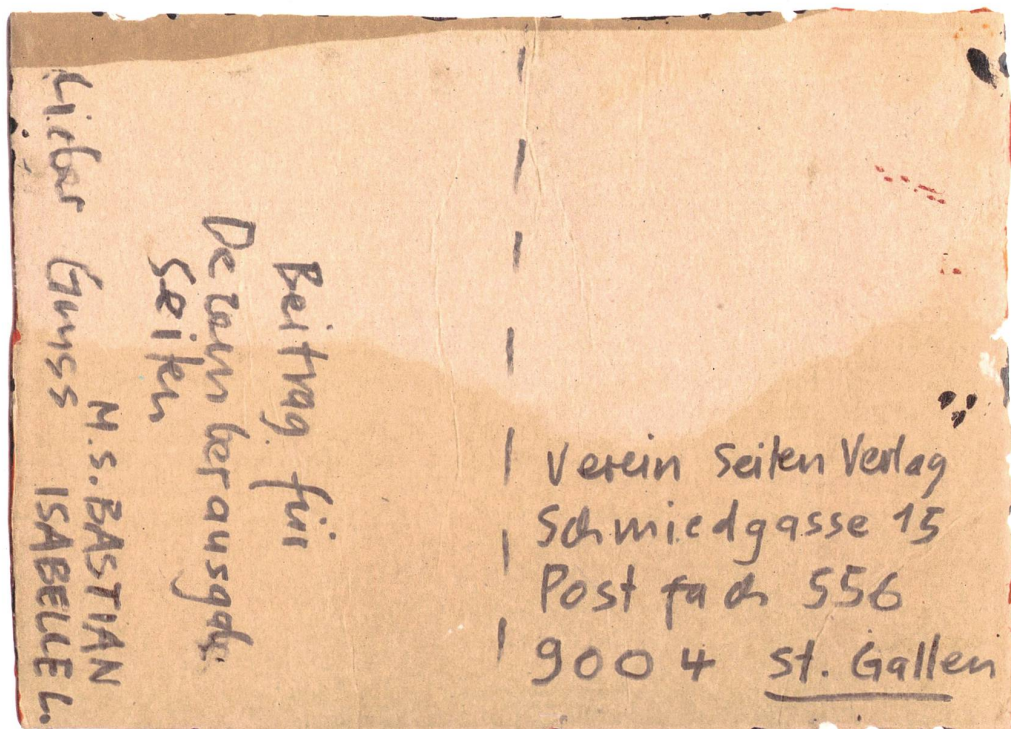 Beitrag für
Dezemberausgabe
Seiten
Lieber Gruss
M.S.BASTIAN
ISABELLE L.
Verein Seiten Verlag
Schmiedgasse 15
Postfach 556
9004 St. Gallen